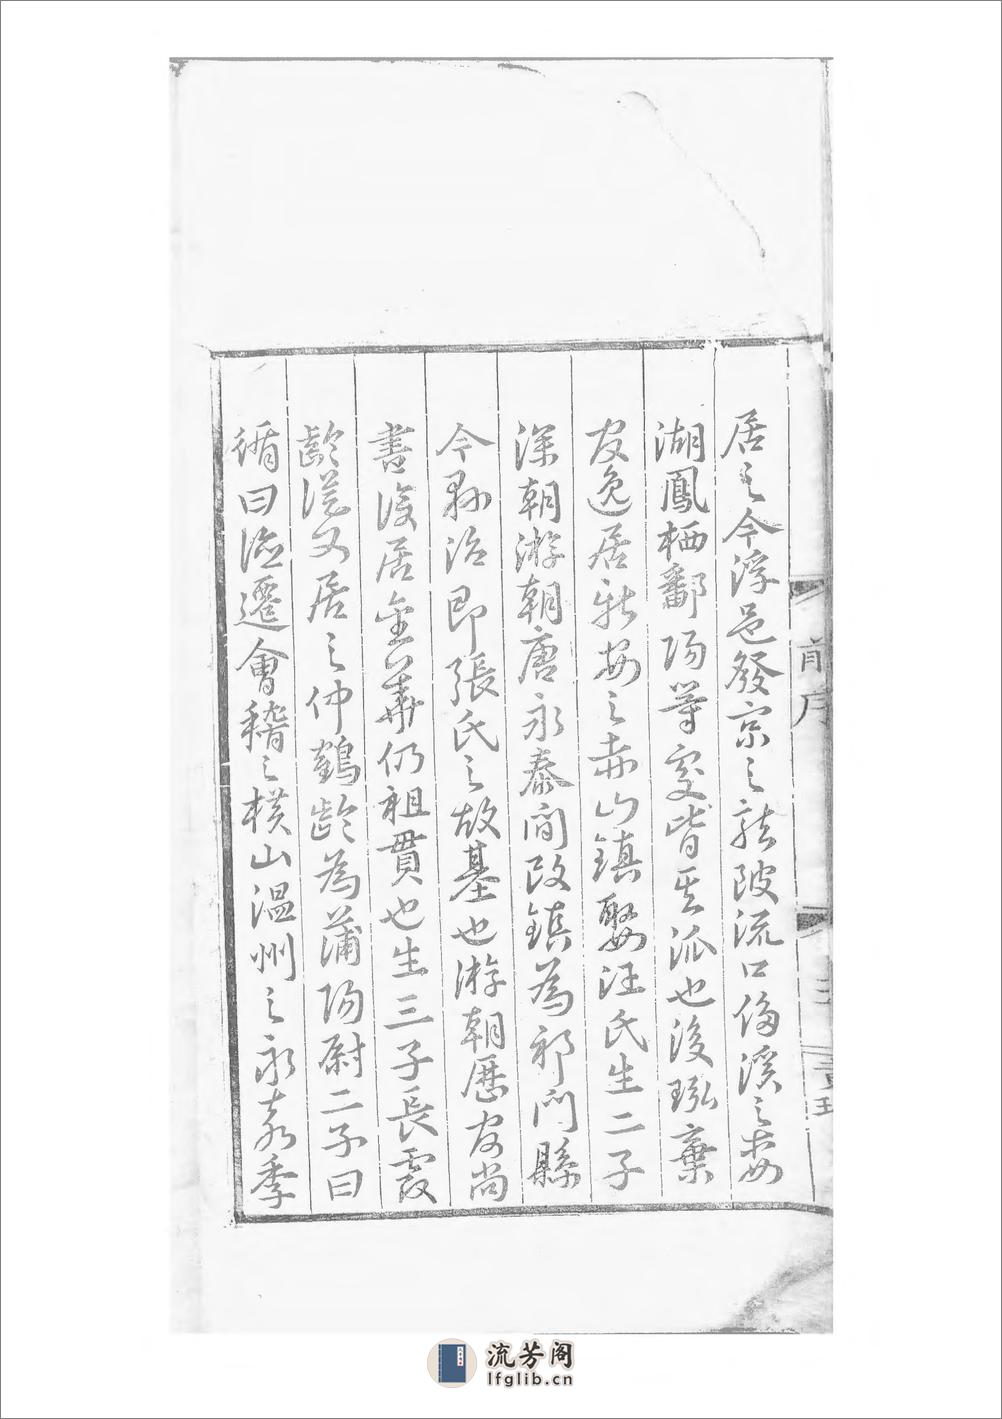 居之今浮邑發京之龍陂流口倫溪之婺
湖鳳栖鄱陽等處皆其派也後弘棄
官逸居新安之赤山鎮娶汪氏生二子
深朝游朝唐永泰間改鎮為祁門縣
今縣治即張氏之故基也游朝歷官尚
書復居金華仍祖貫也生三子長霞
齡從父居之仲鶴齡為蒲陽尉二子曰
循曰 遷會稽之橫山溫州之永嘉季
前序
流芳阁
lfglib.cn